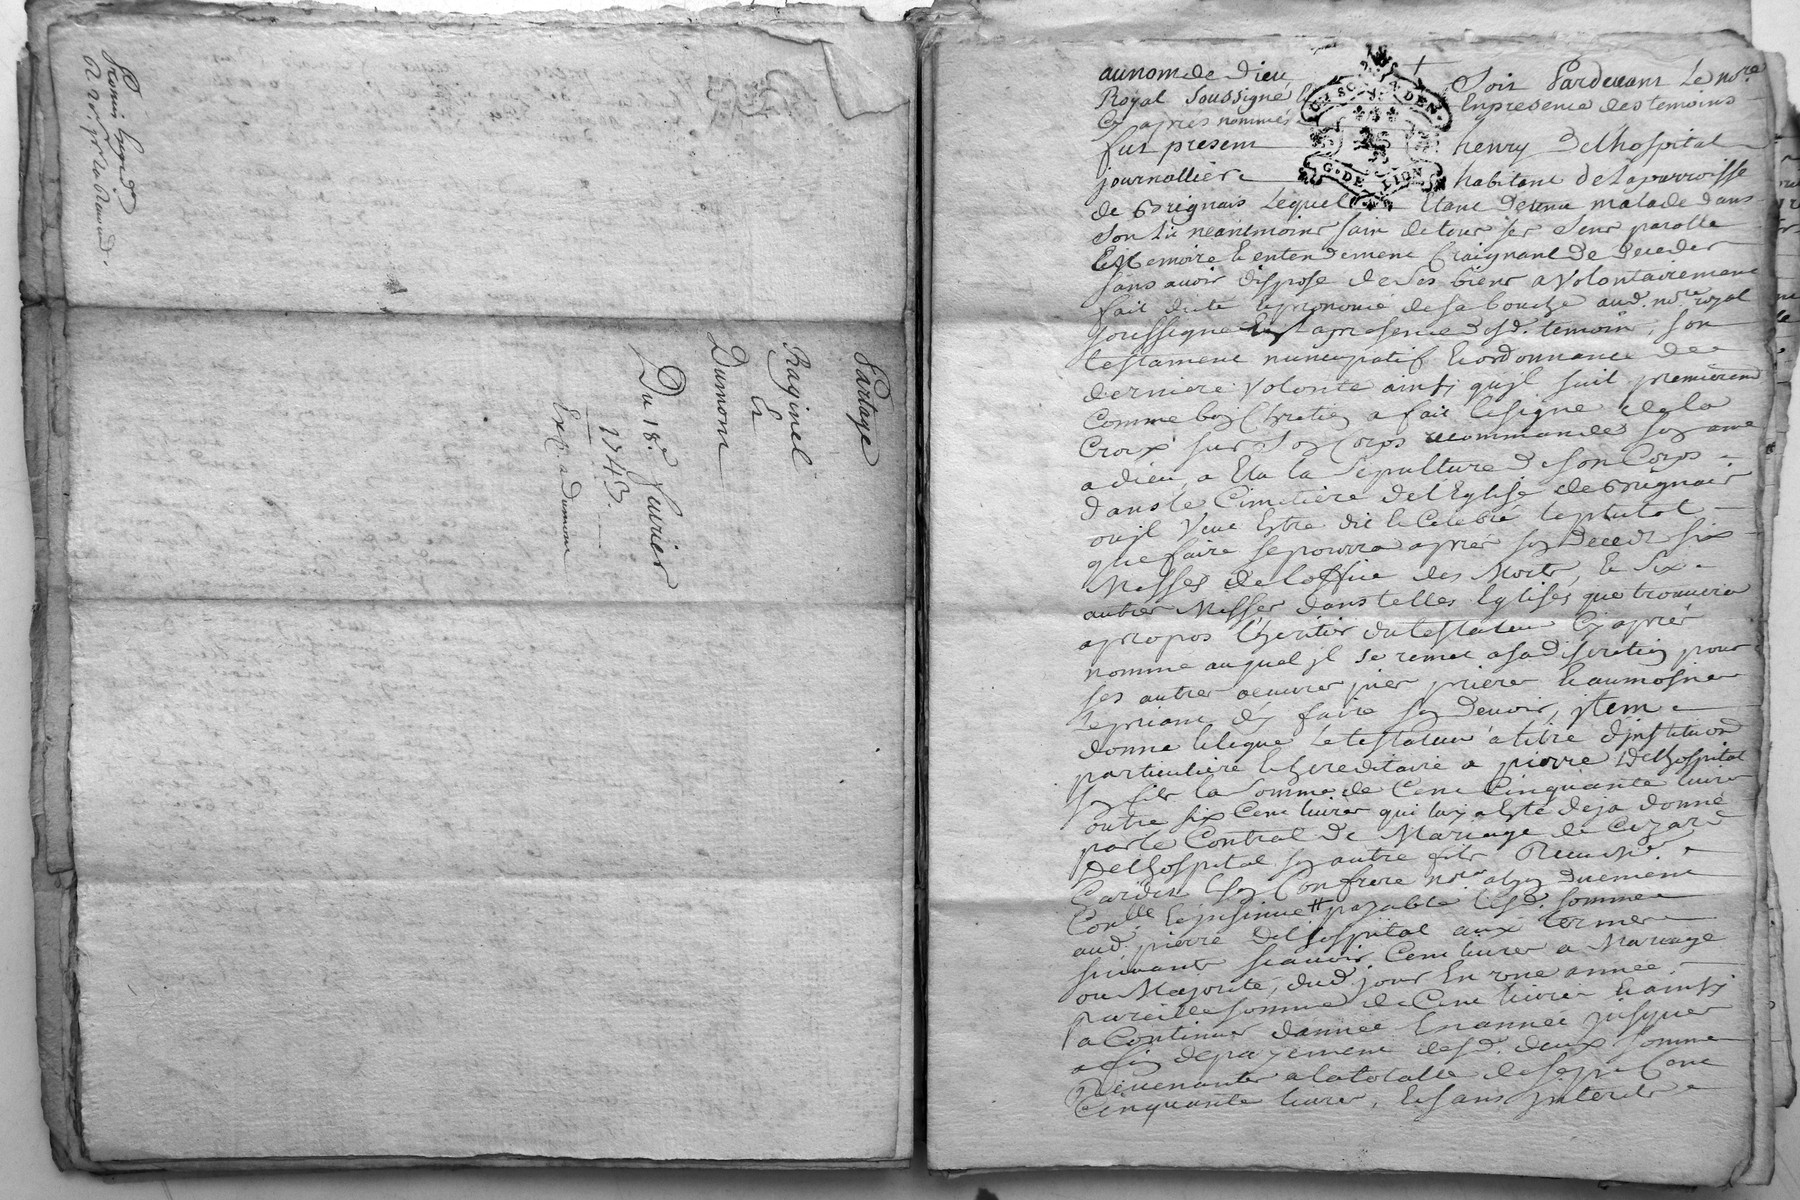 Partage
Raginel
Et
Dumont
Du 18e. Janvier
1743.
Exp. a Dumont
au nom de Dieu Soit Pardevant Le nore
Royal Soussigné Enpresence des temoins
Cy apres nommés
fut present henry Delhospital
journallier habitant de Laparroisse
de Brignais Lequel Etant Detenu malade dans
Son Lit neantmoins sain de tous ses Sens parolle
Et Memoire Et entendement Craignant De Deceder
sans avoir dispose de Ses biens a Volontairement
fait dicté Et prononcé de sa bouche aud. nore royal
soussigné Et En la presence desd. temoins, son
testament nuncupatif Et ordonnance de
derniere Volonté ainsy qu'jl suit premierem
Comme bon Chretien a fait le signe de la
Croix sur Son Corps recommandé son ame
a dieu, a Elu la Sepulture de son Corps
dans le Cimetiere de l'Eglise de Brignais
ou jl Veut Estre dit Et Celebré le plutot
que faire se pourra apres son Deceds six
Messes de l'office des Morts, Et Six
autres Messes dans telles Eglises que trouvera
apropos l'heritier du testateur Cy apres
nommé auquel jl se remet a sa discretion pour
ses autres oeuvres pies prieres Et aumosnes
Le priant d'en faire son Devoir, jtem
donne Et legue Le testateur a titre d'jnstitution
particuliere Et hereditaire a pierre Delhospital
son fils la Somme de Cent Cinquante livres
outre six Cent livres qui luy a Esté deja donné
par le Contrat de Mariage de Cezard
Delhospital son autre fils Receu Me.
Et son Confrere nore
payable lesd. sommes
aud. pierre Delhospital aux termes
suivants scavoir Cent livres a Mariage
ou Majorité, dud. jour En une année
pareille somme de Cent livres Et ainsy
a Continuer dannée En année jusques
a fin de payement desd. deux sommes
Revenantes a la totalle de Sept Cent
Cinquante livres, Et sans jnterets